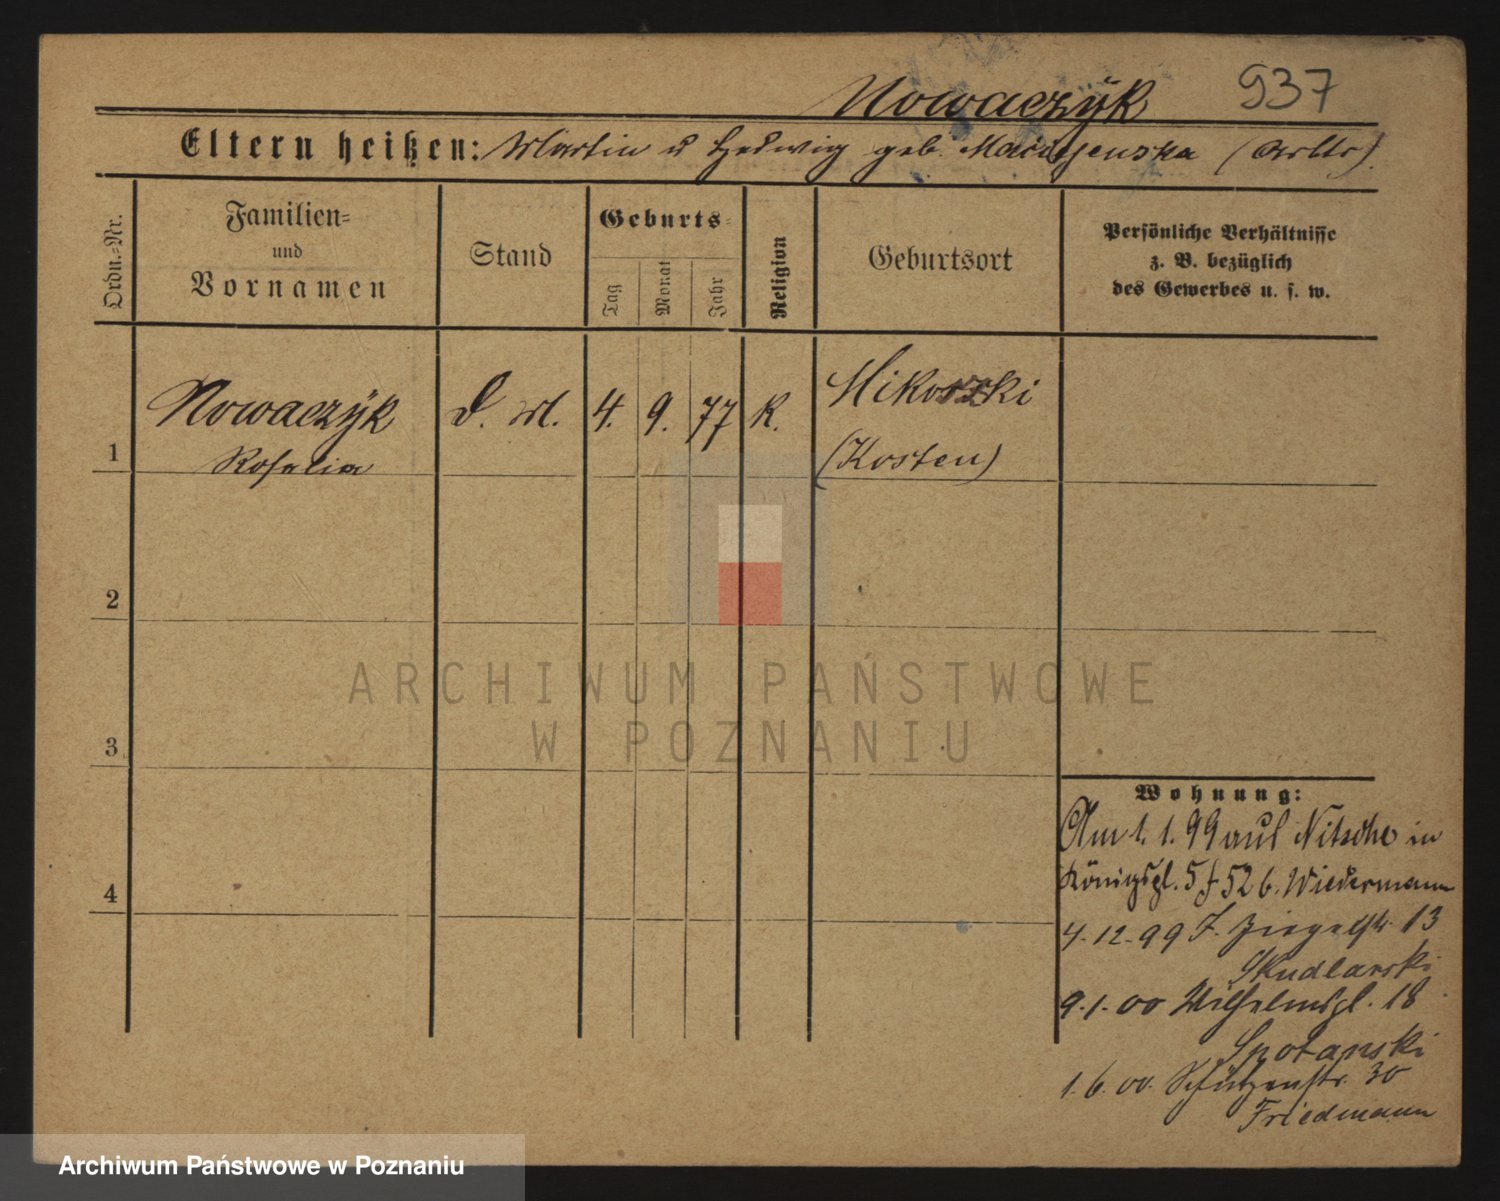 Nowaczyk 937
Eltern heißen: Martin u Hedwig geb.
Ordn.=Nr.
Familien=
und
Vornamen
Stand
Geburts=
Tag
Monat
Jahr
Religion
Geburtsort
Persönliche Verhältnisse
z. B. bezüglich
des Gewerbes u. s. w.
1
Nowaczÿk
Rosalia
D. M.
4. 9. 77
K.
Mikoszki
(Kosten)
2
3
4
ARCHIWUM PAŃSTWOWE
W POZNANIU
Wohnung:
Am 1. 1. 99 Nitsche in
Königspl. 5 b. Wiedermann
4.12.99 Ziegelstr. 13
Skudlarski
9.1.00 Wilhelmspl. 18
Spotanski
1.6.00. Schützenstr. 30
Friedmann
Archiwum Państwowe w Poznaniu